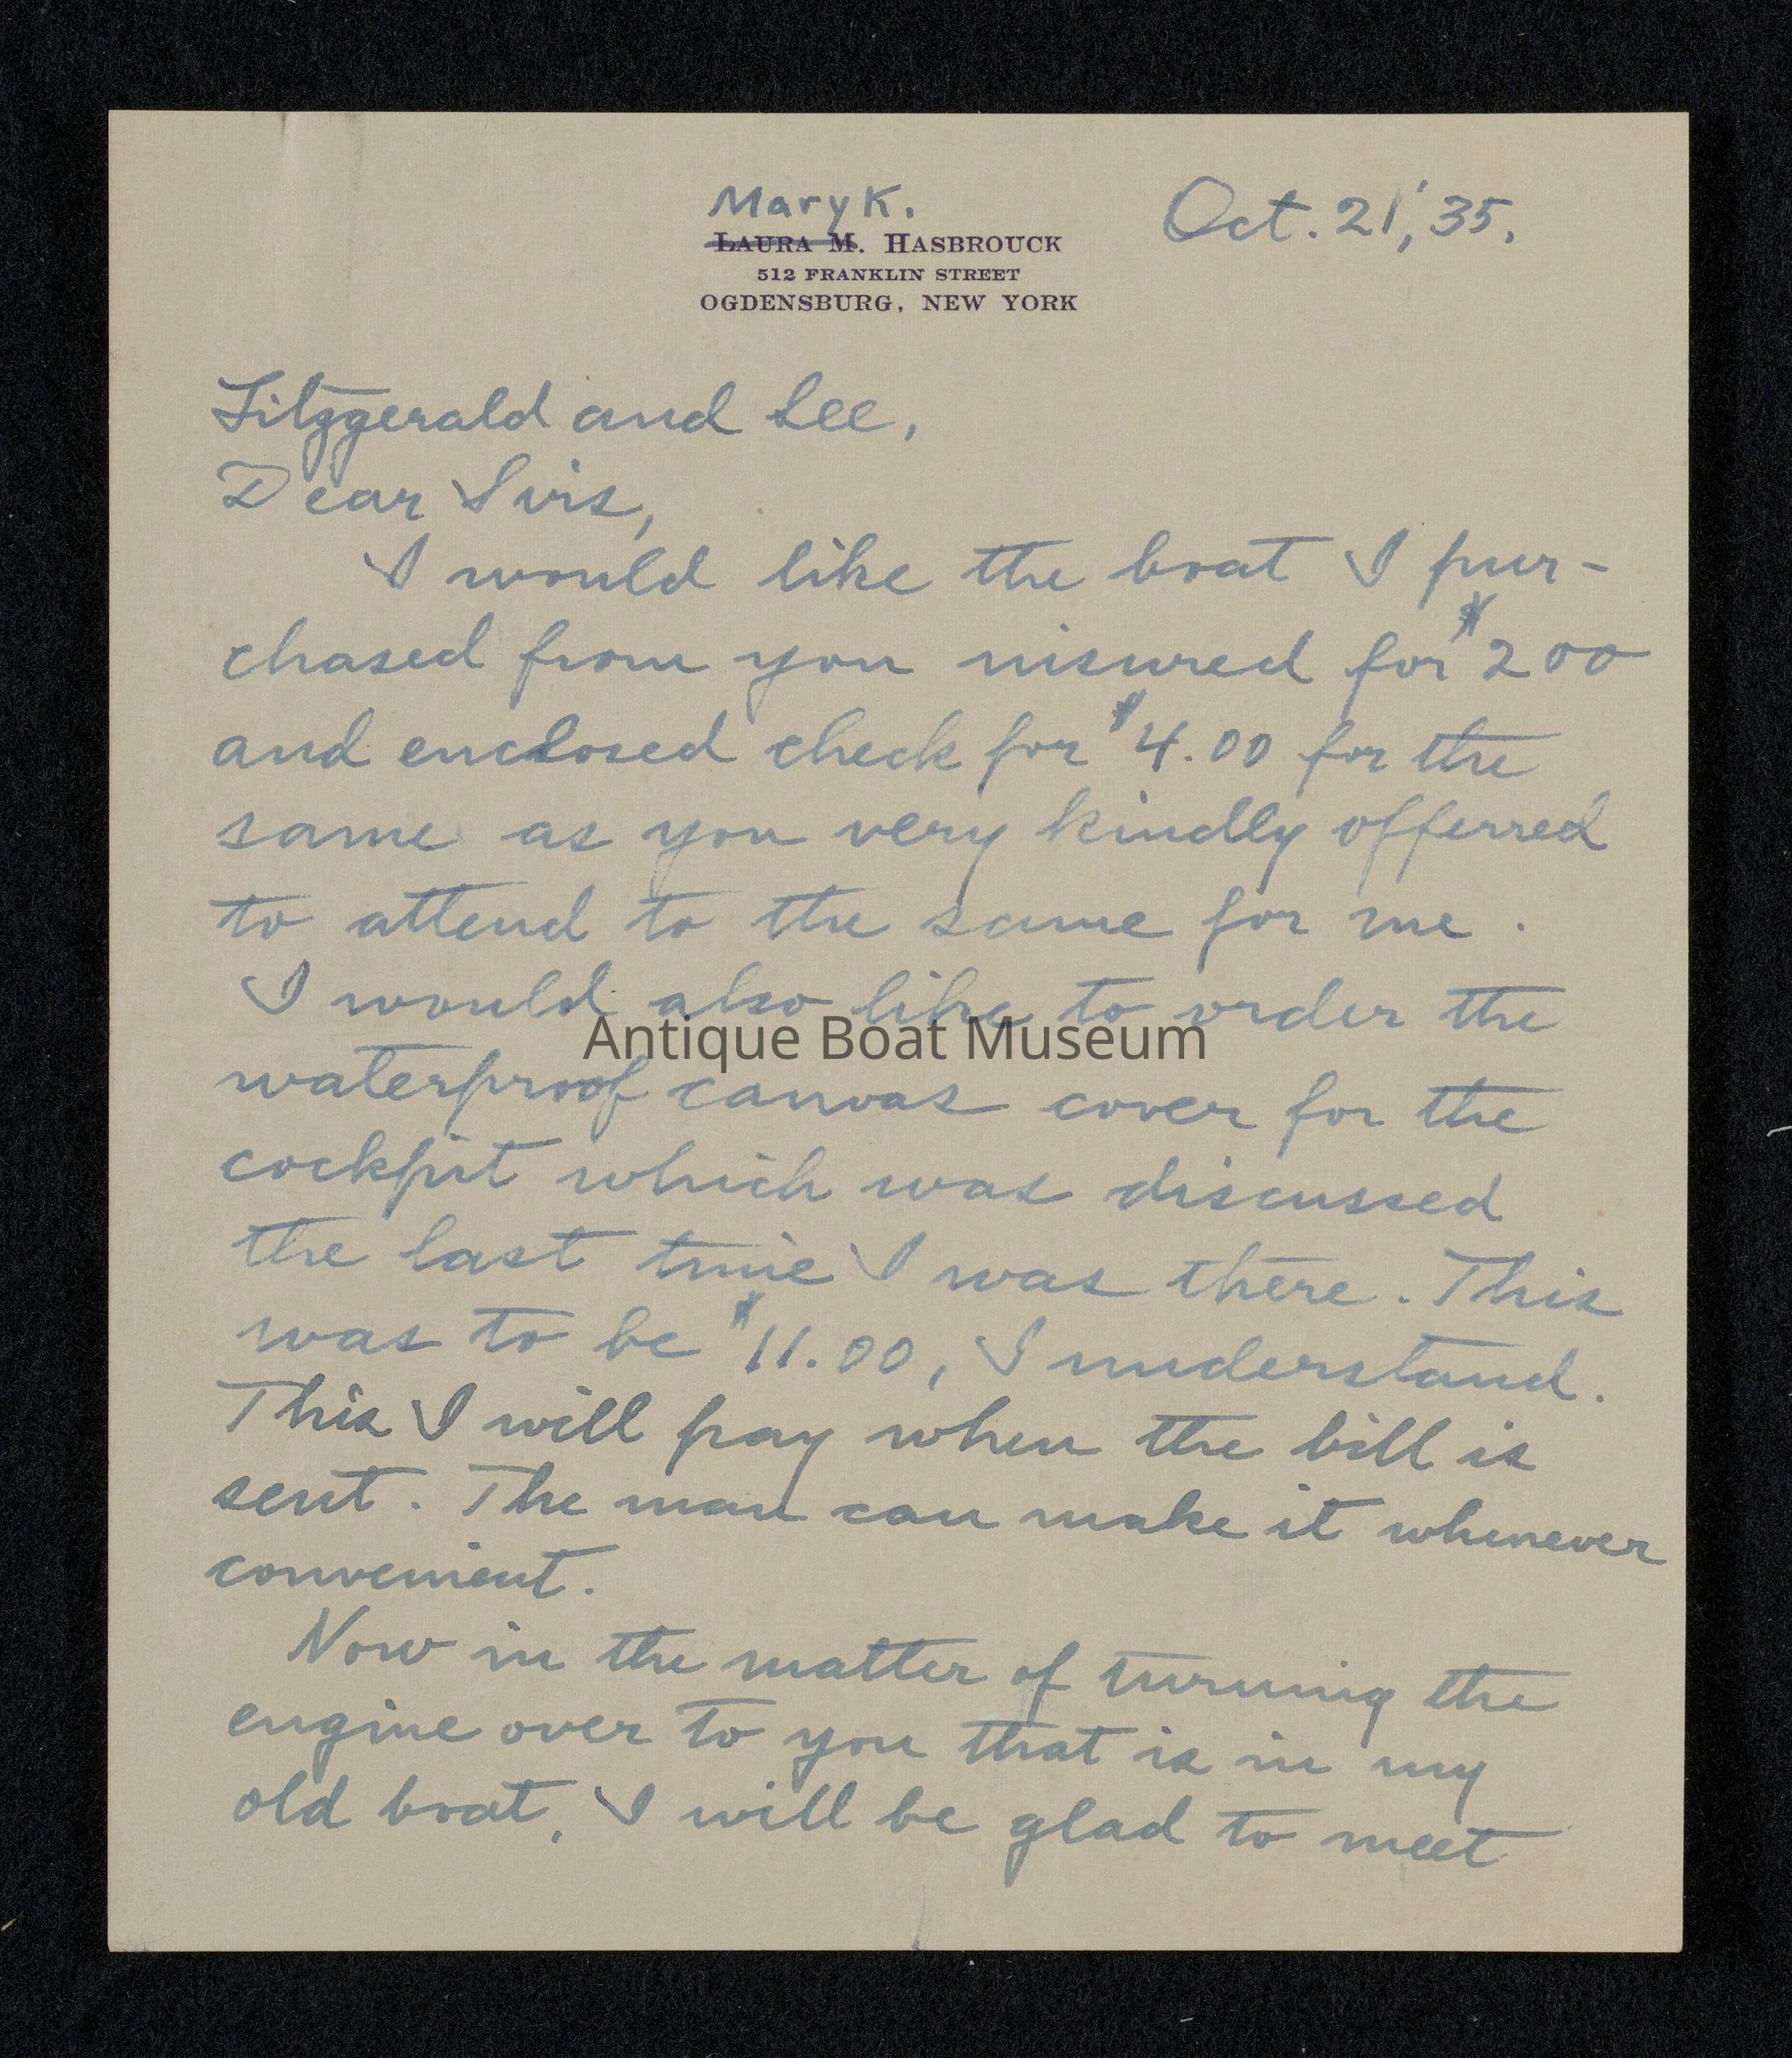 Mary K.
Oct. 21, '35.
LAURA M. HASBROUCK
512 FRANKLIN STREET
OGDENSBURG, NEW YORK
Fitzgerald and Lee,
Dear Sirs,
I would like the boat I pur-
chased from you insured for $200
and enclosed check for $4.00 for the
same as you very kindly offerred
to attend to the same for me.
I would also like to order the
Antique Boat Museum
waterproof canvas cover for the
cockpit which was discussed
the last time I was there. This
was to be $11.00, I understand.
This I will pay when the bill is
sent. The man can make it whenever
convenient.
Now in the matter of turning the
engine over to you that is in my
old boat, I will be glad to meet